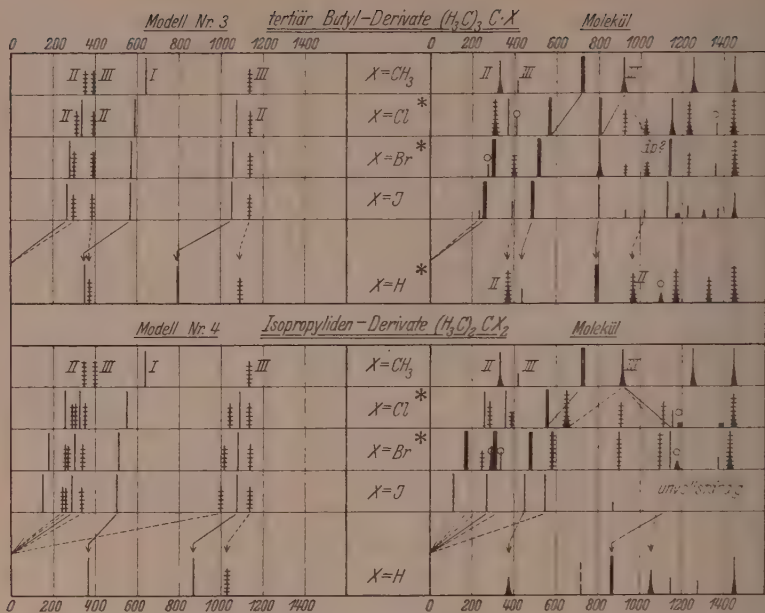 Modell Nr. 3 tertiär Butyl-Derivate (H₃C)₃ C·X Molekül
0 200 400 600 800 1000 1200 1400 0 200 400 600 800 1000 1200 1400
II III I III X=CH₃ II III
II II II X=Cl *
X=Br * ip?
X=J
X=H * II II
Modell Nr. 4 Isopropyliden-Derivate (H₃C)₂ CX₂ Molekül
II III I III X=CH₃ II III III
X=Cl *
X=Br *
X=J
X=H
0 200 400 600 800 1000 1200 1400 0 200 400 600 800 1000 1200 1400